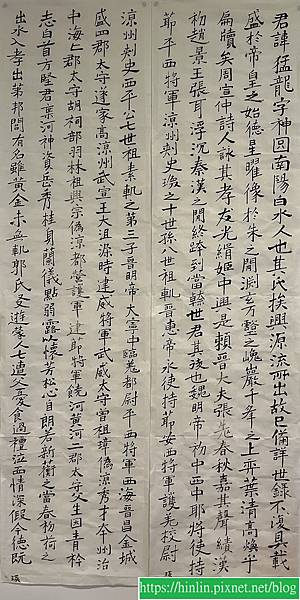 君諱猛龍字神囧南陽白水人也其氏族興源流所出故已備詳世録不復具載
盛於帝皇之始德星曜像於朱之閒淵玄萬壑之巉巖千峯之上奕葉清高煥乎
篇牘矣周宣仲詩人詠其孝友光緝姬中興是賴晉大夫張老春秋嘉其聲績漢
初趙景王張耳浮沉秦漢之閒終跨列當世君其後也魏明帝初中西中郎將使持
節平西將軍涼州刾史瑍之十世孫八世祖軌晉惠帝永使持節安西將軍護羌校尉
涼州刾史西平公七世祖素軌之第三子晉明帝大寧中臨羌都尉平西將軍西海晉昌金城
威四郡太守遂家涼州武宣王大沮渠時建威將軍武威太守曾祖璋偽涼秀才本州治
中海上郡太守胡祖部羽林祖興宗偽涼都營護軍建節將軍饒河黃河二郡太守父生囙青衿
志白首方堅君葉河神資岳秀桂身蘭儀點弱露以懷芳松心自朗若新衝之當春初荷之
出水入孝出第邦閭有名雖黃金未無軌郭氏交遊蒙人七遭父憂食過禮泣血情深假令德既
https://hinlin.pixnet.net/blog